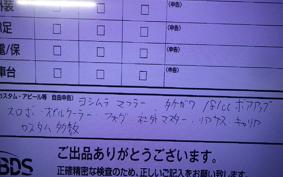 装 □ □ □ (申告)
足 □ □ □ (申告)
電/保 □ □ □ (申告)
車台 □ □ □ (申告)
カスタム・アピール等 自由申告)
ヨシムラ マフラー タケガワ ボアアップ
スロボ・オイルクーラー・フォグ 社外マスター・リアサス・キャリア
カスタム多数
ご出品ありがとうございま
BDS 正確精密な検査のため、正しいご記入をお願い致します